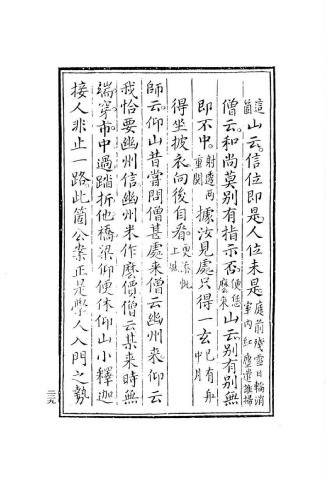 這箇山云。信位即是人位未是庭前殘雪日輪消室內紅塵遣誰掃
僧云。和尚莫別有指示否。便恁麼來山云別有別無
即不中。射透兩重關據汝見處只得一玄已有舟中月
得坐披衣向後自看。更添帆上風
師云。仰山昔嘗問僧甚處來僧云幽州來仰云
我恰要幽州信幽州米作麼價僧云某來時無
端穿市中過踏折他橋梁仰便休仰山小釋迦
接人非止一路此箇公案正是學人入門之勢
二三九